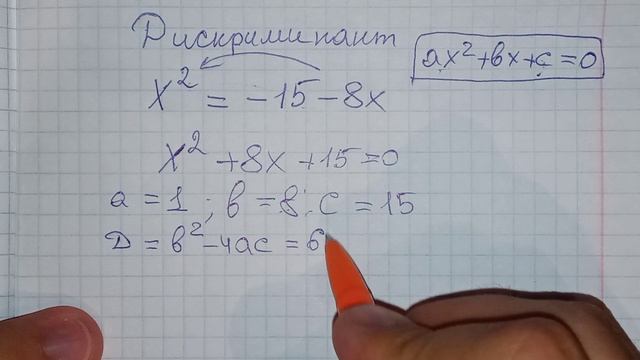 Дискриминант
ax²+вx+c=0
x² = -15 - 8x
x² + 8x + 15 = 0
a = 1 ; в = 8 ; c = 15
Д = в² - 4ac = 6